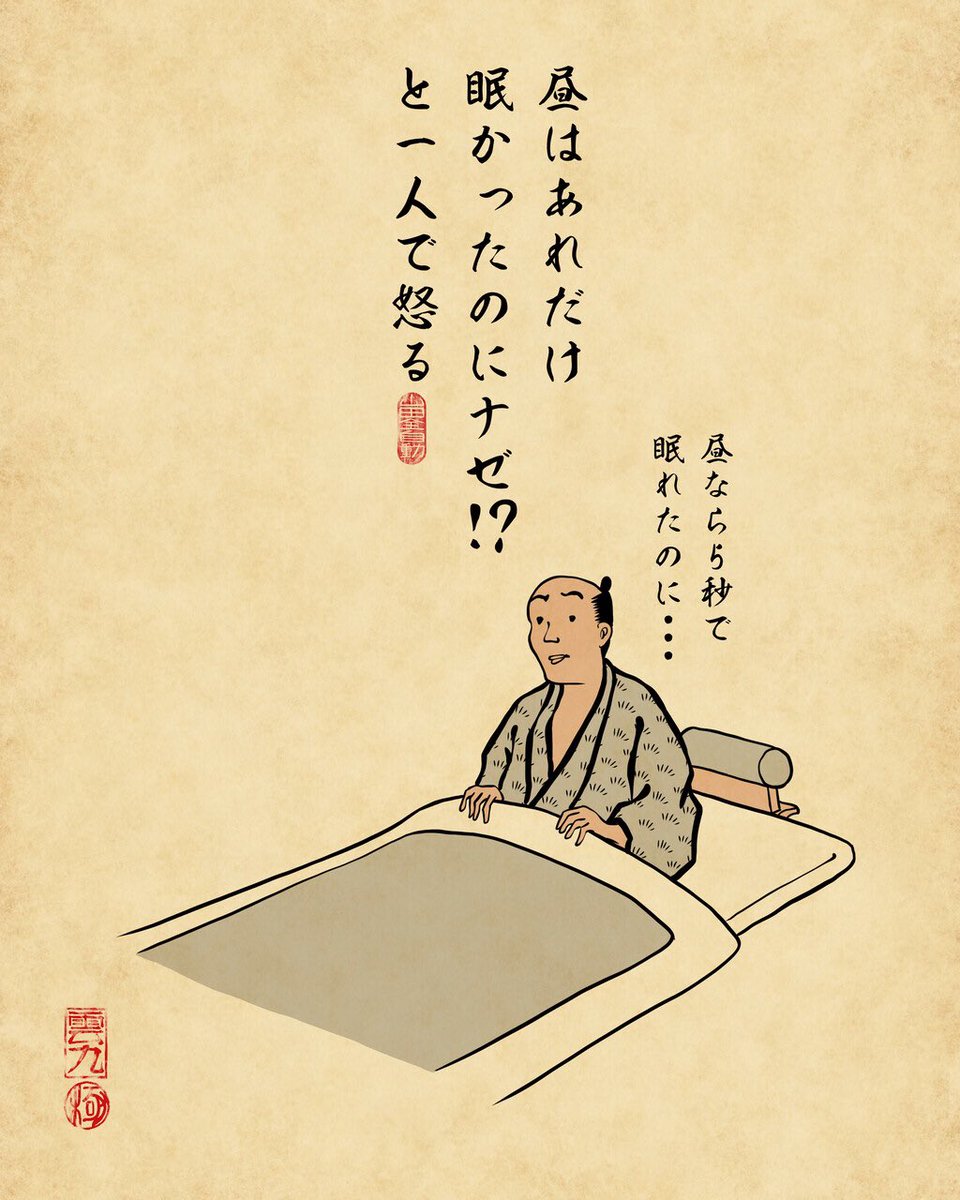 昼はあれだけ
眠かったのにナゼ!?
と一人で怒る
昼なら5秒で
眠れたのに・・・